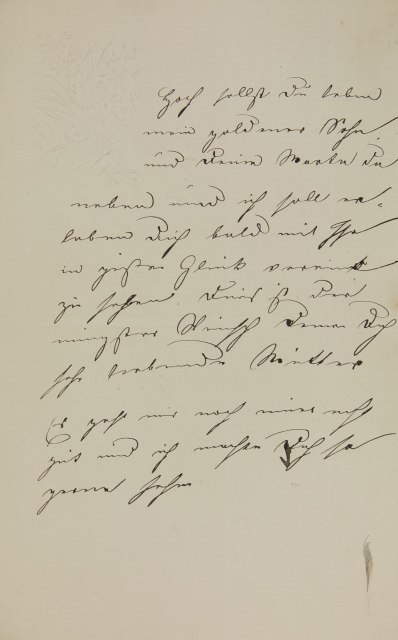 Hoch sollst Du leben
mein goldener Sohn
und Deine Martha da
neben und ich soll er-
leben Dich bald mit Ihr
in Glück vereint
zu sehen. Dies ist der
innigster Wunsch Deiner Dich
sehr liebende Mutter
Es geht mir noch immer recht
gut und ich möchte Dich so
gerne sehen